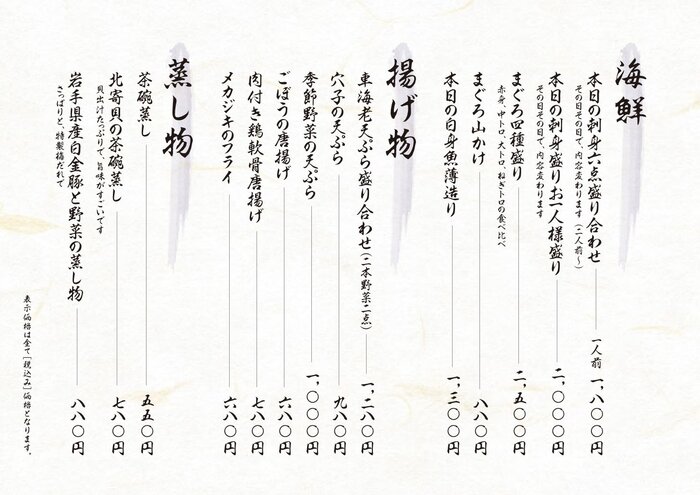 海鮮
本日の刺身六点盛り合わせ 一人前 一、八〇〇円
その日その日で、内容変わります(二人前～)
本日の刺身盛りお一人様盛り 二、〇〇〇円
その日その日で、内容変わります
まぐろ四種盛り 二、五〇〇円
赤身、中トロ、大トロ、ねぎトロの食べ比べ
まぐろ山かけ 八八〇円
本日の白身魚薄造り 一、三〇〇円
揚げ物
車海老天ぷら盛り合わせ(二本野菜二点) 一、二八〇円
穴子の天ぷら 九八〇円
季節野菜の天ぷら 一、〇〇〇円
ごぼうの唐揚げ 六八〇円
肉付き鶏軟骨唐揚げ 七八〇円
メカジキのフライ 六八〇円
蒸し物
茶碗蒸し 五五〇円
北寄貝の茶碗蒸し 七八〇円
貝出汁たっぷりで、旨味がすごいです
岩手県産白金豚と野菜の蒸し物 八八〇円
さっぱりと、特製橘だれで
表示価格は全て[税込み]価格となります。